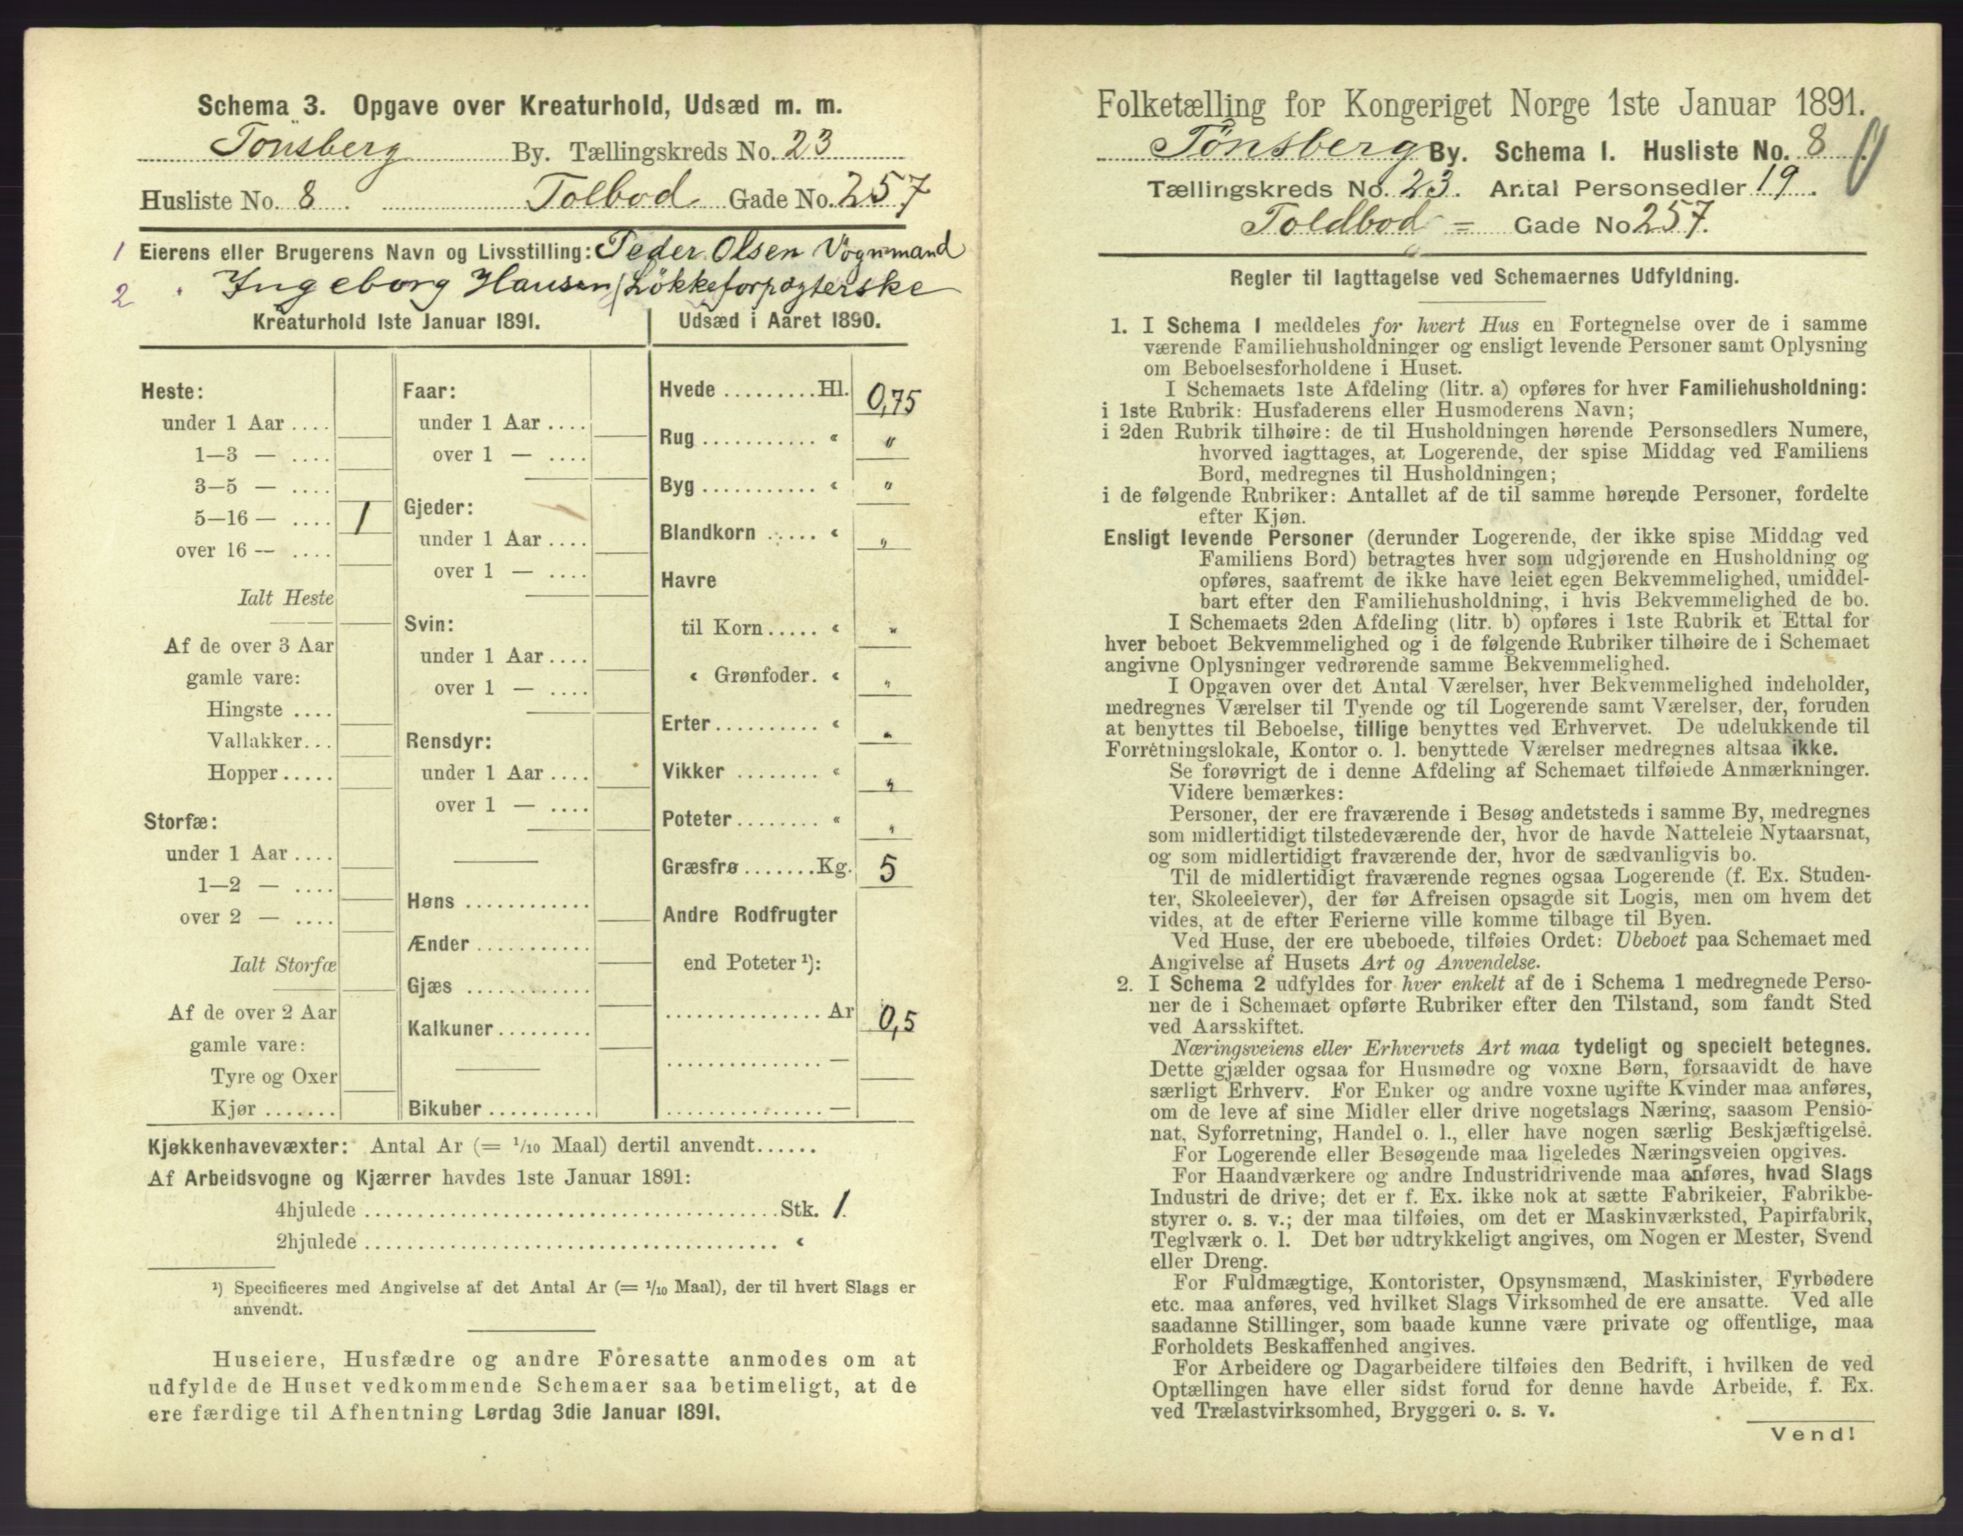 Schema 3. Opgave over Kreaturhold, Udsæd m. m.
Tönsberg By. Tællingskreds No. 23
Husliste No. 8 Tolbod Gade No. 257
1 Eierens eller Brugerens Navn og Livsstilling: Peder Olsen Vognmand
2 Ingeborg Hansen Løkkeforpagterske
Kreaturhold 1ste Januar 1891.
Heste:
under 1 Aar ....
1—3 — ....
3—5 — ....
5—16 — .... 1
over 16 — ....
Ialt Heste
Af de over 3 Aar
gamle vare:
Hingste ....
Vallakker...
Hopper .....
Storfæ:
under 1 Aar ....
1—2 — ....
over 2 — ....
Ialt Storfæ
Af de over 2 Aar
gamle vare:
Tyre og Oxer
Kjør .......
Faar:
under 1 Aar ....
over 1 — ....
Gjeder:
under 1 Aar ....
over 1 — ....
Svin:
under 1 Aar ....
over 1 — ....
Rensdyr:
under 1 Aar ....
over 1 — ....
Høns ............
Ænder ...........
Gjæs ............
Kalkuner .........
Bikuber ..........
Udsæd i Aaret 1890.
Hvede ......... Hl. 0,75
Rug ........... « "
Byg ........... « "
Blandkorn ..... « "
Havre
til Korn ..... « "
« Grønfoder. « "
Erter .......... « "
Vikker ........ « "
Poteter ........ « "
Græsfrø ....... Kg. 5
Andre Rodfrugter
end Poteter ¹):
............... Ar 0,5
............... —
............... —
Kjøkkenhavevæxter: Antal Ar (= 1/10 Maal) dertil anvendt......
Af Arbeidsvogne og Kjærrer havdes 1ste Januar 1891:
4hjulede ...................................... Stk. 1.
2hjulede ...................................... «
¹) Specificeres med Angivelse af det Antal Ar (= 1/10 Maal), der til hvert Slags er
anvendt.
Huseiere, Husfædre og andre Foresatte anmodes om at
udfylde de Huset vedkommende Schemaer saa betimeligt, at de
ere færdige til Afhentning Lørdag 3die Januar 1891.
Folketælling for Kongeriget Norge 1ste Januar 1891.
Tønsberg By. Schema 1. Husliste No. 8
Tællingskreds No. 23. Antal Personsedler 19.
Toldbod = Gade No 257.
Regler til Iagttagelse ved Schemaernes Udfyldning.
1. I Schema 1 meddeles for hvert Hus en Fortegnelse over de i samme
værende Familiehusholdninger og ensligt levende Personer samt Oplysning
om Beboelsesforholdene i Huset.
I Schemaets 1ste Afdeling (litr. a) opføres for hver Familiehusholdning:
i 1ste Rubrik: Husfaderens eller Husmoderens Navn;
i 2den Rubrik tilhøire: de til Husholdningen hørende Personsedlers Numere,
hvorved iagttages, at Logerende, der spise Middag ved Familiens
Bord, medregnes til Husholdningen;
i de følgende Rubriker: Antallet af de til samme hørende Personer, fordelte
efter Kjøn.
Ensligt levende Personer (derunder Logerende, der ikke spise Middag ved
Familiens Bord) betragtes hver som udgjørende en Husholdning og
opføres, saafremt de ikke have leiet egen Bekvemmelighed, umiddel-
bart efter den Familiehusholdning, i hvis Bekvemmelighed de bo.
I Schemaets 2den Afdeling (litr. b) opføres i 1ste Rubrik et Ettal for
hver beboet Bekvemmelighed og i de følgende Rubriker tilhøire de i Schemaet
angivne Oplysninger vedrørende samme Bekvemmelighed.
I Opgaven over det Antal Værelser, hver Bekvemmelighed indeholder,
medregnes Værelser til Tyende og til Logerende samt Værelser, der, foruden
at benyttes til Beboelse, tillige benyttes ved Erhvervet. De udelukkende til
Forretningslokale, Kontor o. l. benyttede Værelser medregnes altsaa ikke.
Se forøvrigt de i denne Afdeling af Schemaet tilføiede Anmærkninger.
Videre bemærkes:
Personer, der ere fraværende i Besøg andetsteds i samme By, medregnes
som midlertidigt tilstedeværende der, hvor de havde Natteleie Nytaarsnat,
og som midlertidigt fraværende der, hvor de sædvanligvis bo.
Til de midlertidigt fraværende regnes ogsaa Logerende (f. Ex. Studen-
ter, Skoleelever), der før Afreisen opsagde sit Logis, men om hvem det
vides, at de efter Ferierne ville komme tilbage til Byen.
Ved Huse, der ere ubeboede, tilføies Ordet: Ubeboet paa Schemaet med
Angivelse af Husets Art og Anvendelse.
2. I Schema 2 udfyldes for hver enkelt af de i Schema 1 medregnede Perso-
ner de i Schemaet opførte Rubriker efter den Tilstand, som fandt Sted
ved Aarsskiftet.
Næringsveiens eller Erhvervets Art maa tydeligt og specielt betegnes.
Dette gjælder ogsaa for Husmødre og voxne Børn, forsaavidt de have
særligt Erhverv. For Enker og andre voxne ugifte Kvinder maa anføres,
om de leve af sine Midler eller drive nogetslags Næring, saasom Pensio-
nat, Syforretning, Handel o. l., eller have nogen særlig Beskjæftigelse.
For Logerende eller Besøgende maa ligeledes Næringsveien opgives.
For Haandværkere og andre Industridrivende maa anføres, hvad Slags
Industri de drive; det er f. Ex. ikke nok at sætte Fabrikeier, Fabrikbe-
styrer o. s. v.; der maa tilføies, om det er Maskinværksted, Papirfabrik,
Teglværk o. l. Det bør udtrykkeligt angives, om Nogen er Mester, Svend
eller Dreng.
For Fuldmægtige, Kontorister, Opsynsmænd, Maskinister, Fyrbødere
etc. maa anføres, ved hvilket Slags Virksomhed de ere ansatte. Ved alle
saadanne Stillinger, som baade kunne være private og offentlige, maa
Forholdets Beskaffenhed angives.
For Arbeidere og Dagarbeidere tilføies den Bedrift, i hvilken de ved
Optællingen have eller sidst forud for denne havde Arbeide, f. Ex.
ved Trælastvirksomhed, Bryggeri o. s. v.
Vend!